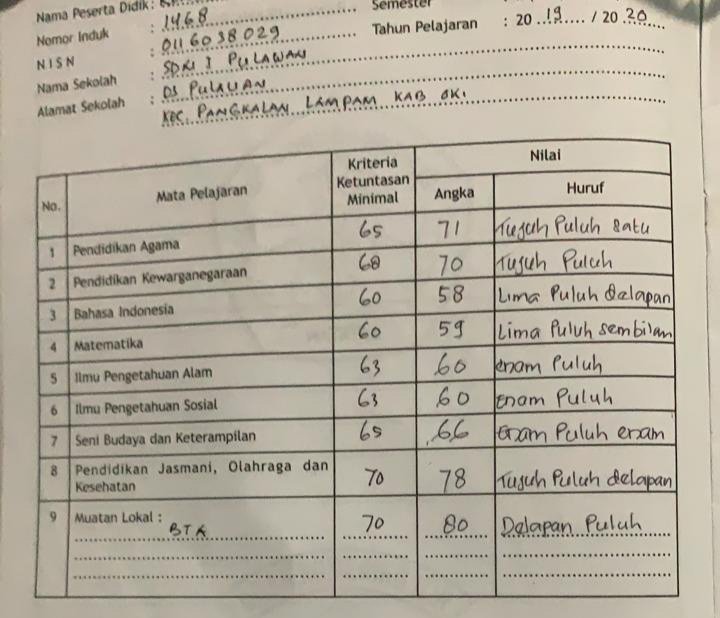 Nama Peserta Didik :
Semester
Nomor Induk : 1468
Tahun Pelajaran : 20 19 / 20 20
N I S N : 0116038029
Nama Sekolah : SDN 1 PULAUAN
Alamat Sekolah : DS PULAUAN
KEC. PANGKALAN LAMPAM KAB OKI
No. Mata Pelajaran Kriteria Ketuntasan Minimal Nilai
Angka Huruf
1 Pendidikan Agama 65 71 Tujuh Puluh Satu
2 Pendidikan Kewarganegaraan 68 70 Tujuh Puluh
3 Bahasa Indonesia 60 58 Lima Puluh delapan
4 Matematika 60 59 Lima Puluh sembilan
5 Ilmu Pengetahuan Alam 63 60 enam Puluh
6 Ilmu Pengetahuan Sosial 63 60 Enam Puluh
7 Seni Budaya dan Keterampilan 65 66 Enam Puluh enam
8 Pendidikan Jasmani, Olahraga dan
Kesehatan 70 78 Tujuh Puluh delapan
9 Muatan Lokal :
BTA 70 80 Delapan Puluh